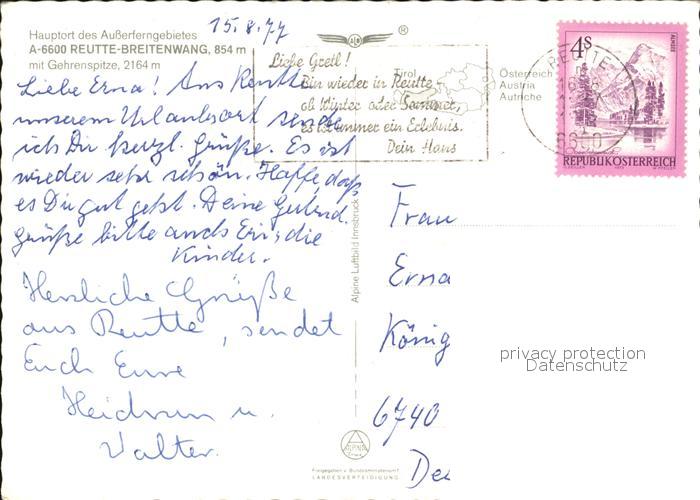 15.8.77
Hauptort des Außerferngebietes
A-6600 REUTTE-BREITENWANG, 854 m
mit Gehrenspitze, 2164 m
Liebe Erna! Aus Reutte
unserem Urlaubsort sende
ich Dir herzl. Grüße. Es ist
wieder sehr schön. Hoffe, daß
es Dir gut geht. Deine Gutend.
grüße bitte auch Eri, die
Kinder.
Herzliche Grüße
aus Reutte, sendet
Euch Eure
Heidrun u.
Walter.
®
Liebe Gretl!
Bin wieder in Reutte -
ob Winter oder Sommer,
es ist immer ein Erlebnis.
Dein Hans
Tirol
Österreich
Austria
Autriche
REUTTE
6600
4S
ALMSEE
REPUBLIK ÖSTERREICH
Alpine Luftbild Innsbruck
Frau
Erna
König
6740
privacy protection
Datenschutz
ALPINE
Freigegeben v. Bundesministerium f.
LANDESVERTEIDIGUNG